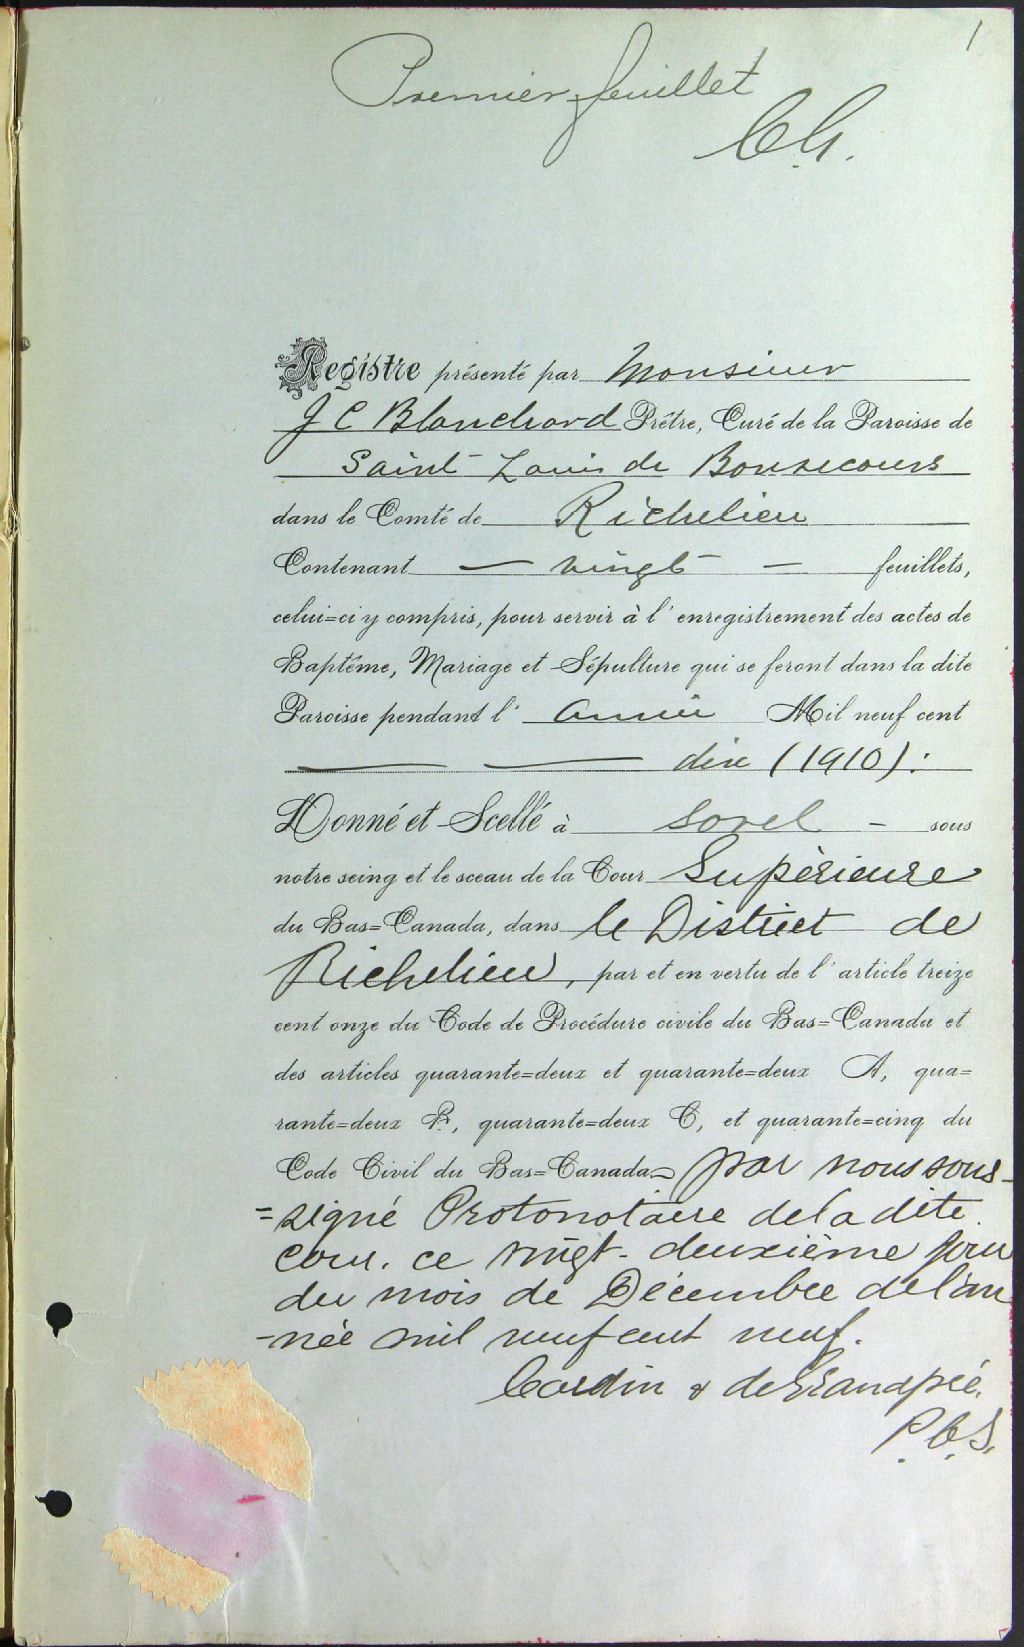 1
Premier feuillet
C.h.
Registre présenté par Monsieur
J C Blanchard Prêtre, Curé de la Paroisse de
Saint Louis de Bonsecours
dans le Comté de Richelieu
Contenant — vingt — feuillets,
celui=ci y compris, pour servir à l'enregistrement des actes de
Baptême, Mariage et Sépulture qui se feront dans la dite
Paroisse pendant l'année Mil neuf cent
— — dix (1910):
Donné et Scellé à Sorel — sous
notre seing et le sceau de la Cour Supérieure
du Bas=Canada, dans le District de
Richelieu, par et en vertu de l'article treize
cent onze du Code de Procédure civile du Bas=Canada et
des articles quarante=deux et quarante=deux A, qua=
rante=deux B, quarante=deux C, et quarante=cinq du
Code Civil du Bas=Canada= par nous sous-
=signé Protonotaire de la dite
Cour. ce vingt-deuxième jour
du mois de Décembre de l'an
-née mil neuf cent neuf.
Cardin & deGrandpré.
P.C.S.